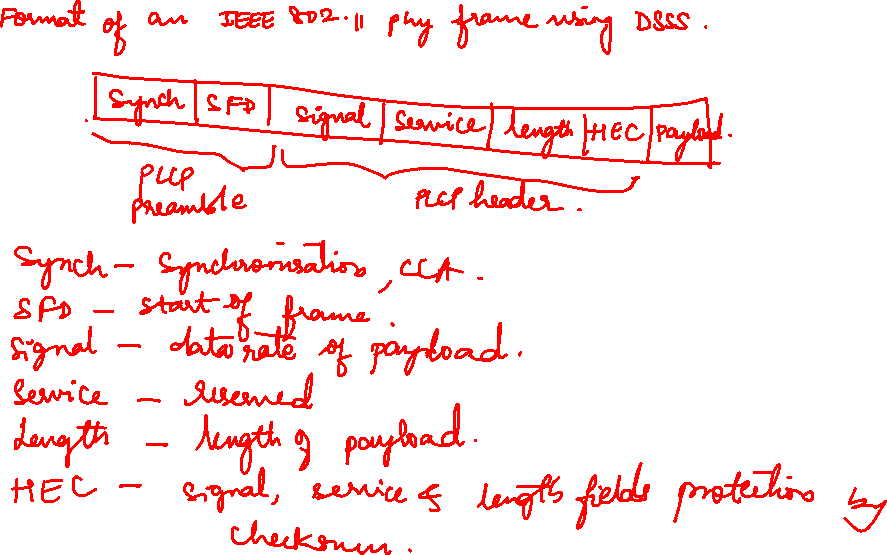 Format of an IEEE 802.11 phy frame using DSSS.
Synch SFD signal service length HEC payload.
PLCP preamble PLCP header.
Synch - Synchronisation, CCA.
SFD - start of frame
Signal - data rate of payload.
Service - reserved
Length - length of payload.
HEC - signal, service & length fields protection by
checksum.